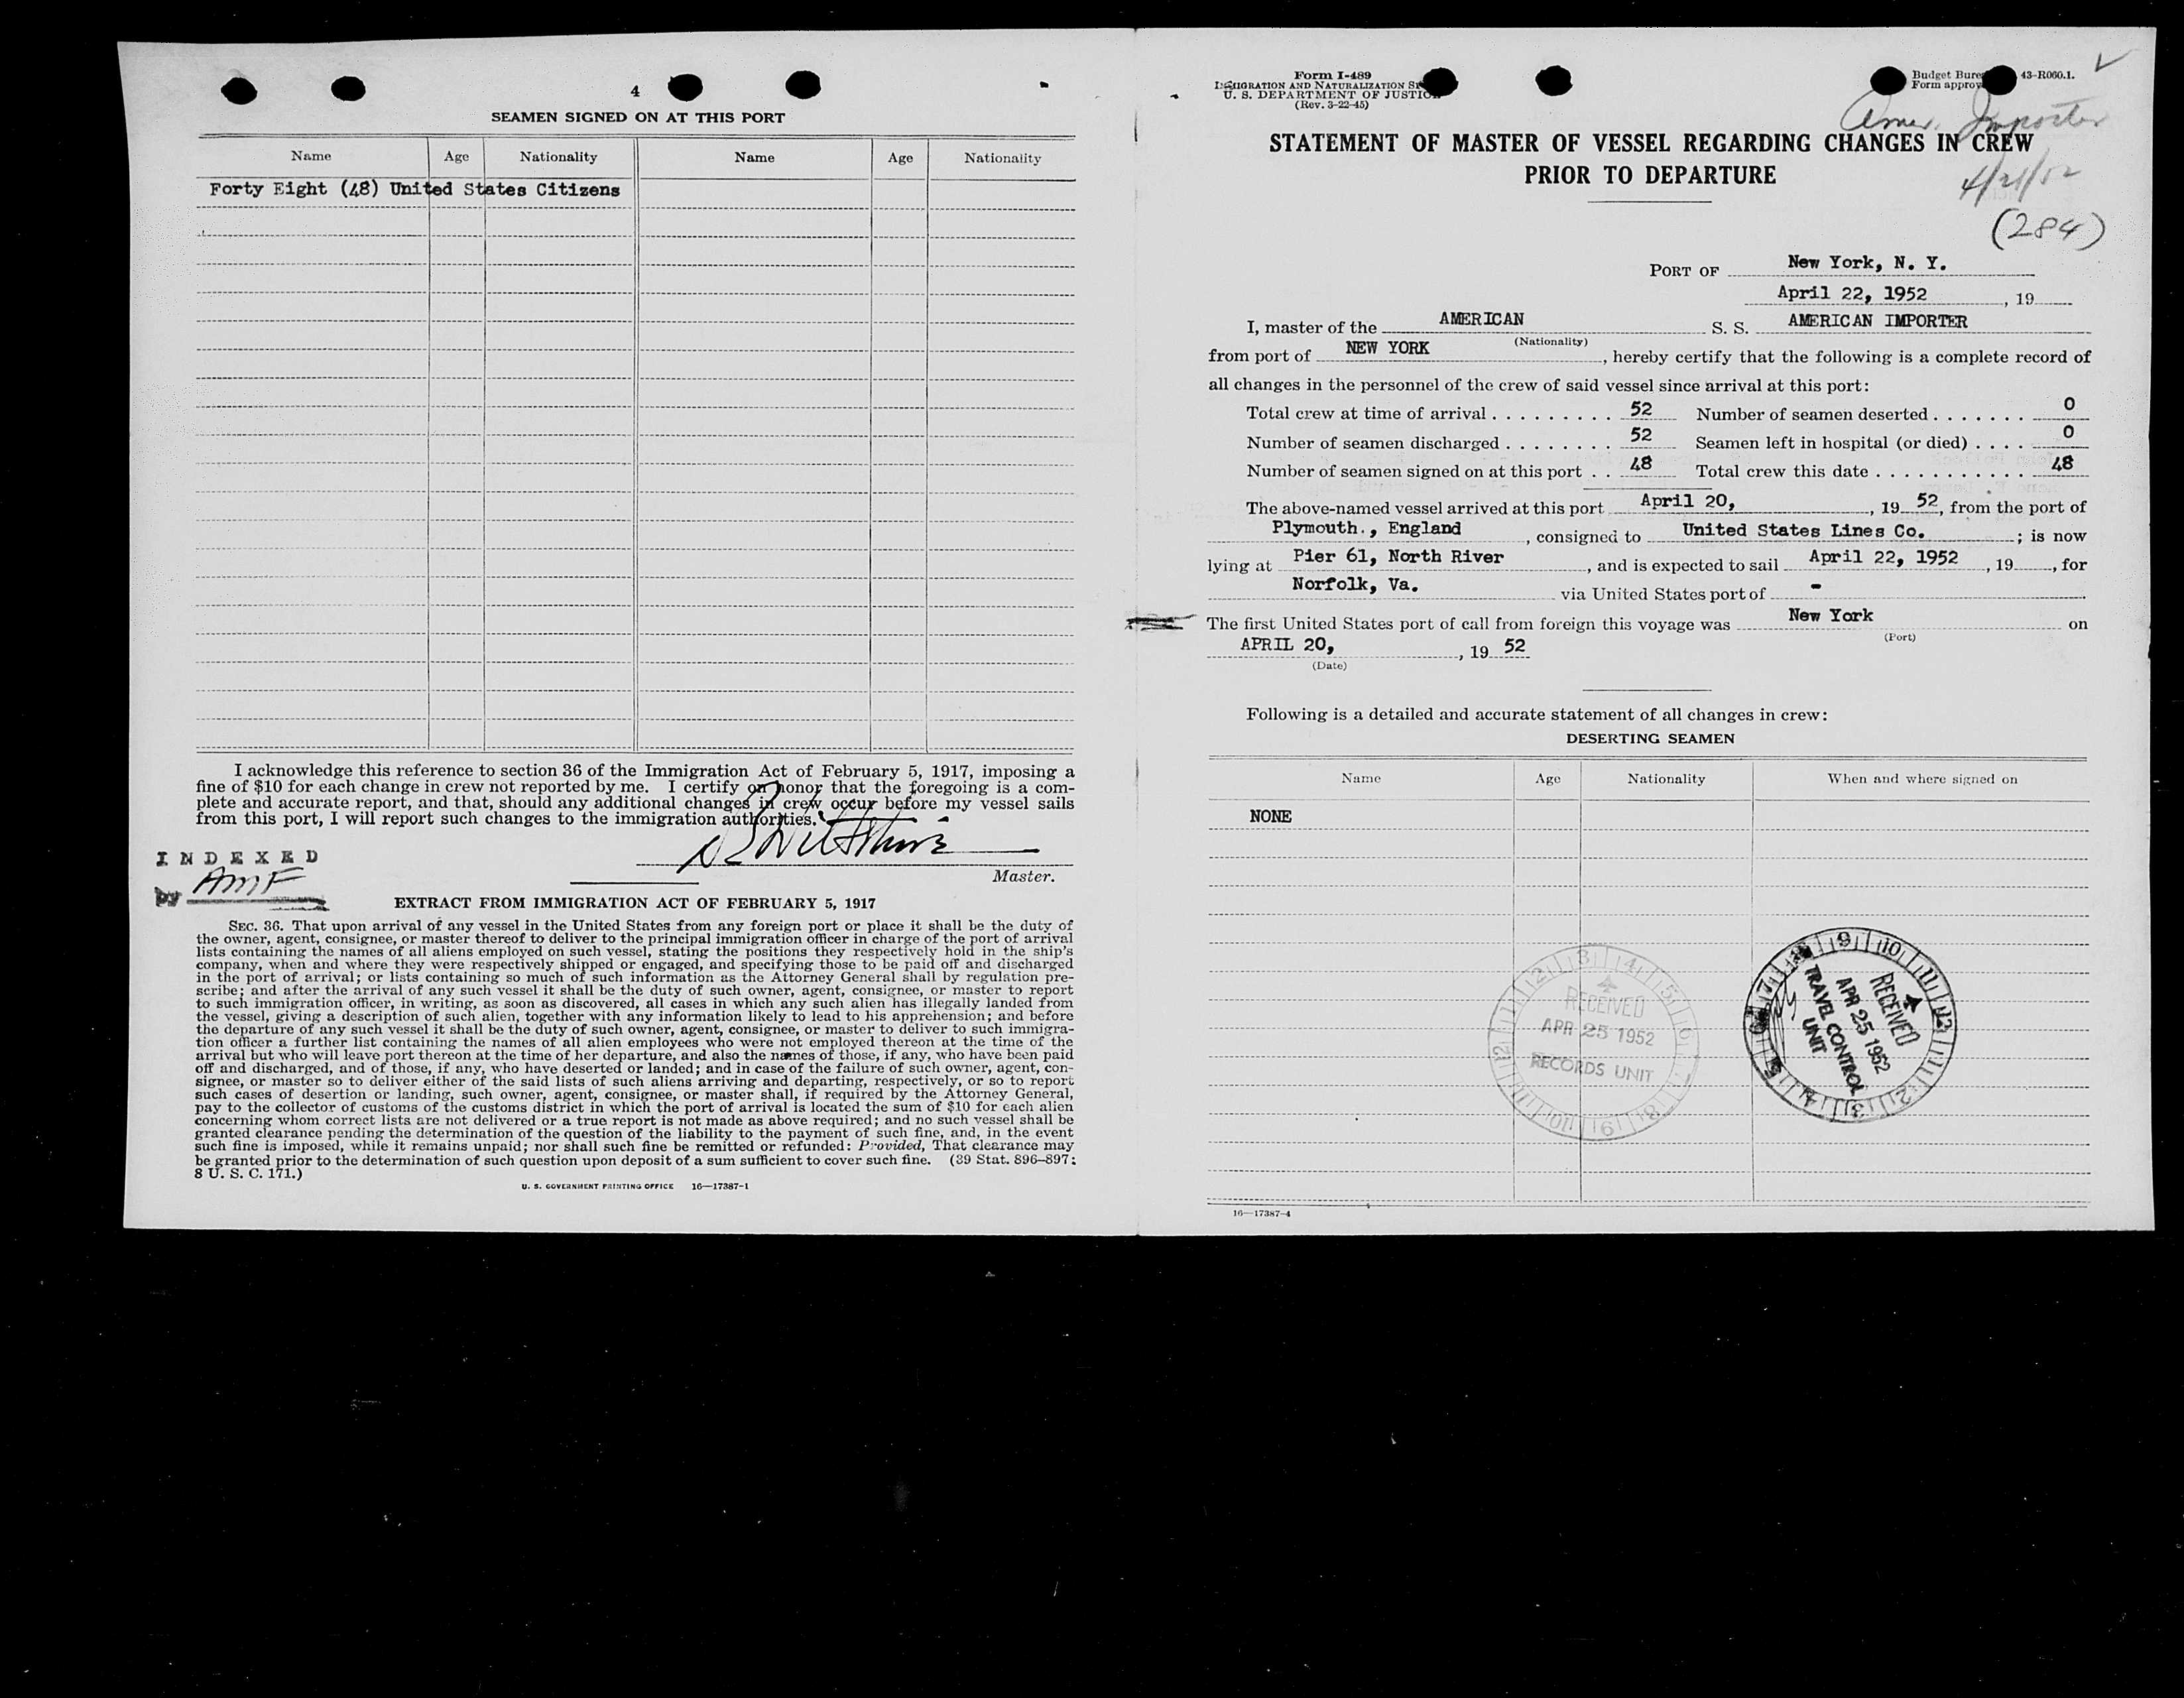 4
SEAMEN SIGNED ON AT THIS PORT
Name Age Nationality Name Age Nationality
Forty Eight (48) United States Citizens
I acknowledge this reference to section 36 of the Immigration Act of February 5, 1917, imposing a
fine of $10 for each change in crew not reported by me. I certify on honor that the foregoing is a com-
plete and accurate report, and that, should any additional changes in crew occur before my vessel sails
from this port, I will report such changes to the immigration authorities.
Master.
INDEXED
by AMF
EXTRACT FROM IMMIGRATION ACT OF FEBRUARY 5, 1917
SEC. 36. That upon arrival of any vessel in the United States from any foreign port or place it shall be the duty of
the owner, agent, consignee, or master thereof to deliver to the principal immigration officer in charge of the port of arrival
lists containing the names of all aliens employed on such vessel, stating the positions they respectively hold in the ship's
company, when and where they were respectively shipped or engaged, and specifying those to be paid off and discharged
in the port of arrival; or lists containing so much of such information as the Attorney General shall by regulation pre-
scribe; and after the arrival of any such vessel it shall be the duty of such owner, agent, consignee, or master to report
to such immigration officer, in writing, as soon as discovered, all cases in which any such alien has illegally landed from
the vessel, giving a description of such alien, together with any information likely to lead to his apprehension; and before
the departure of any such vessel it shall be the duty of such owner, agent, consignee, or master to deliver to such immigra-
tion officer a further list containing the names of all alien employees who were not employed thereon at the time of the
arrival but who will leave port thereon at the time of her departure, and also the names of those, if any, who have been paid
off and discharged, and of those, if any, who have deserted or landed; and in case of the failure of such owner, agent, con-
signee, or master so to deliver either of the said lists of such aliens arriving and departing, respectively, or so to report
such cases of desertion or landing, such owner, agent, consignee, or master shall, if required by the Attorney General,
pay to the collector of customs of the customs district in which the port of arrival is located the sum of $10 for each alien
concerning whom correct lists are not delivered or a true report is not made as above required; and no such vessel shall be
granted clearance pending the determination of the question of the liability to the payment of such fine, and, in the event
such fine is imposed, while it remains unpaid; nor shall such fine be remitted or refunded: Provided, That clearance may
be granted prior to the determination of such question upon deposit of a sum sufficient to cover such fine. (39 Stat. 896-897;
8 U. S. C. 171.)
U. S. GOVERNMENT PRINTING OFFICE 16—17387-1
Form I-489
IMMIGRATION AND NATURALIZATION
U. S. DEPARTMENT OF JUSTICE
(Rev. 3-22-45)
Budget 43-R060.1.
Form
Amer. Importer
4/21/52
(284)
STATEMENT OF MASTER OF VESSEL REGARDING CHANGES IN CREW
PRIOR TO DEPARTURE
PORT OF New York, N. Y.
April 22, 1952, 19
I, master of the AMERICAN S. S. AMERICAN IMPORTER
(Nationality)
from port of NEW YORK, hereby certify that the following is a complete record of
all changes in the personnel of the crew of said vessel since arrival at this port:
Total crew at time of arrival . . . . . . . . . 52 Number of seamen deserted . . . . . . . 0
Number of seamen discharged . . . . . . . . 52 Seamen left in hospital (or died) . . . . 0
Number of seamen signed on at this port . . 48 Total crew this date . . . . . . . . . . . . 48
The above-named vessel arrived at this port April 20, , 19 52, from the port of
Plymouth., England, consigned to United States Lines Co. ; is now
lying at Pier 61, North River, and is expected to sail April 22, 1952, 19 , for
Norfolk, Va. via United States port of -
The first United States port of call from foreign this voyage was New York on
(Port)
APRIL 20, , 19 52
(Date)
Following is a detailed and accurate statement of all changes in crew:
DESERTING SEAMEN
Name Age Nationality When and where signed on
NONE
RECEIVED
APR 25 1952
RECORDS UNIT
RECEIVED
APR 25 1952
TRAVEL CONTROL
UNIT
16—17387-4